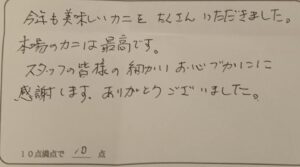 今年も美味しいカニをたくさんいただきました。
本場のカニは最高です。
スタッフの皆様の細かいお心づかいに
感謝します。ありがとうございました。
10点満点で 10 点